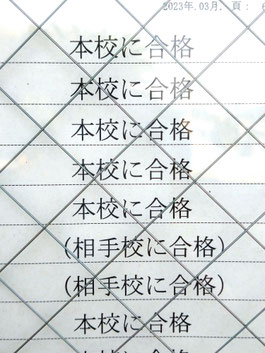 2023年.03月. 頁:
本校に合格
本校に合格
本校に合格
本校に合格
本校に合格
(相手校に合格)
(相手校に合格)
本校に合格
本校に合格